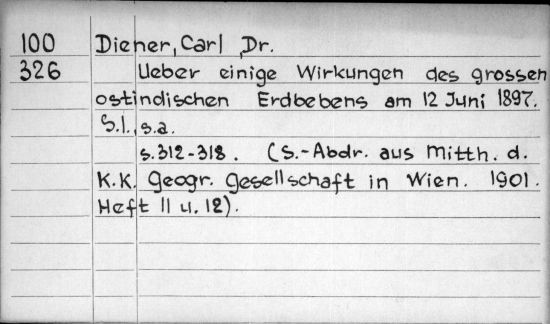 100 Diener, Carl, Dr.
326 Ueber einige Wirkungen des grossen
ostindischen Erdbebens am 12 Juni 1897.
S.l., s.a.
s.312-318. (S.-Abdr. aus Mitth. d.
K.K. Geogr. Gesellschaft in Wien. 1901.
Heft 11 u. 12).